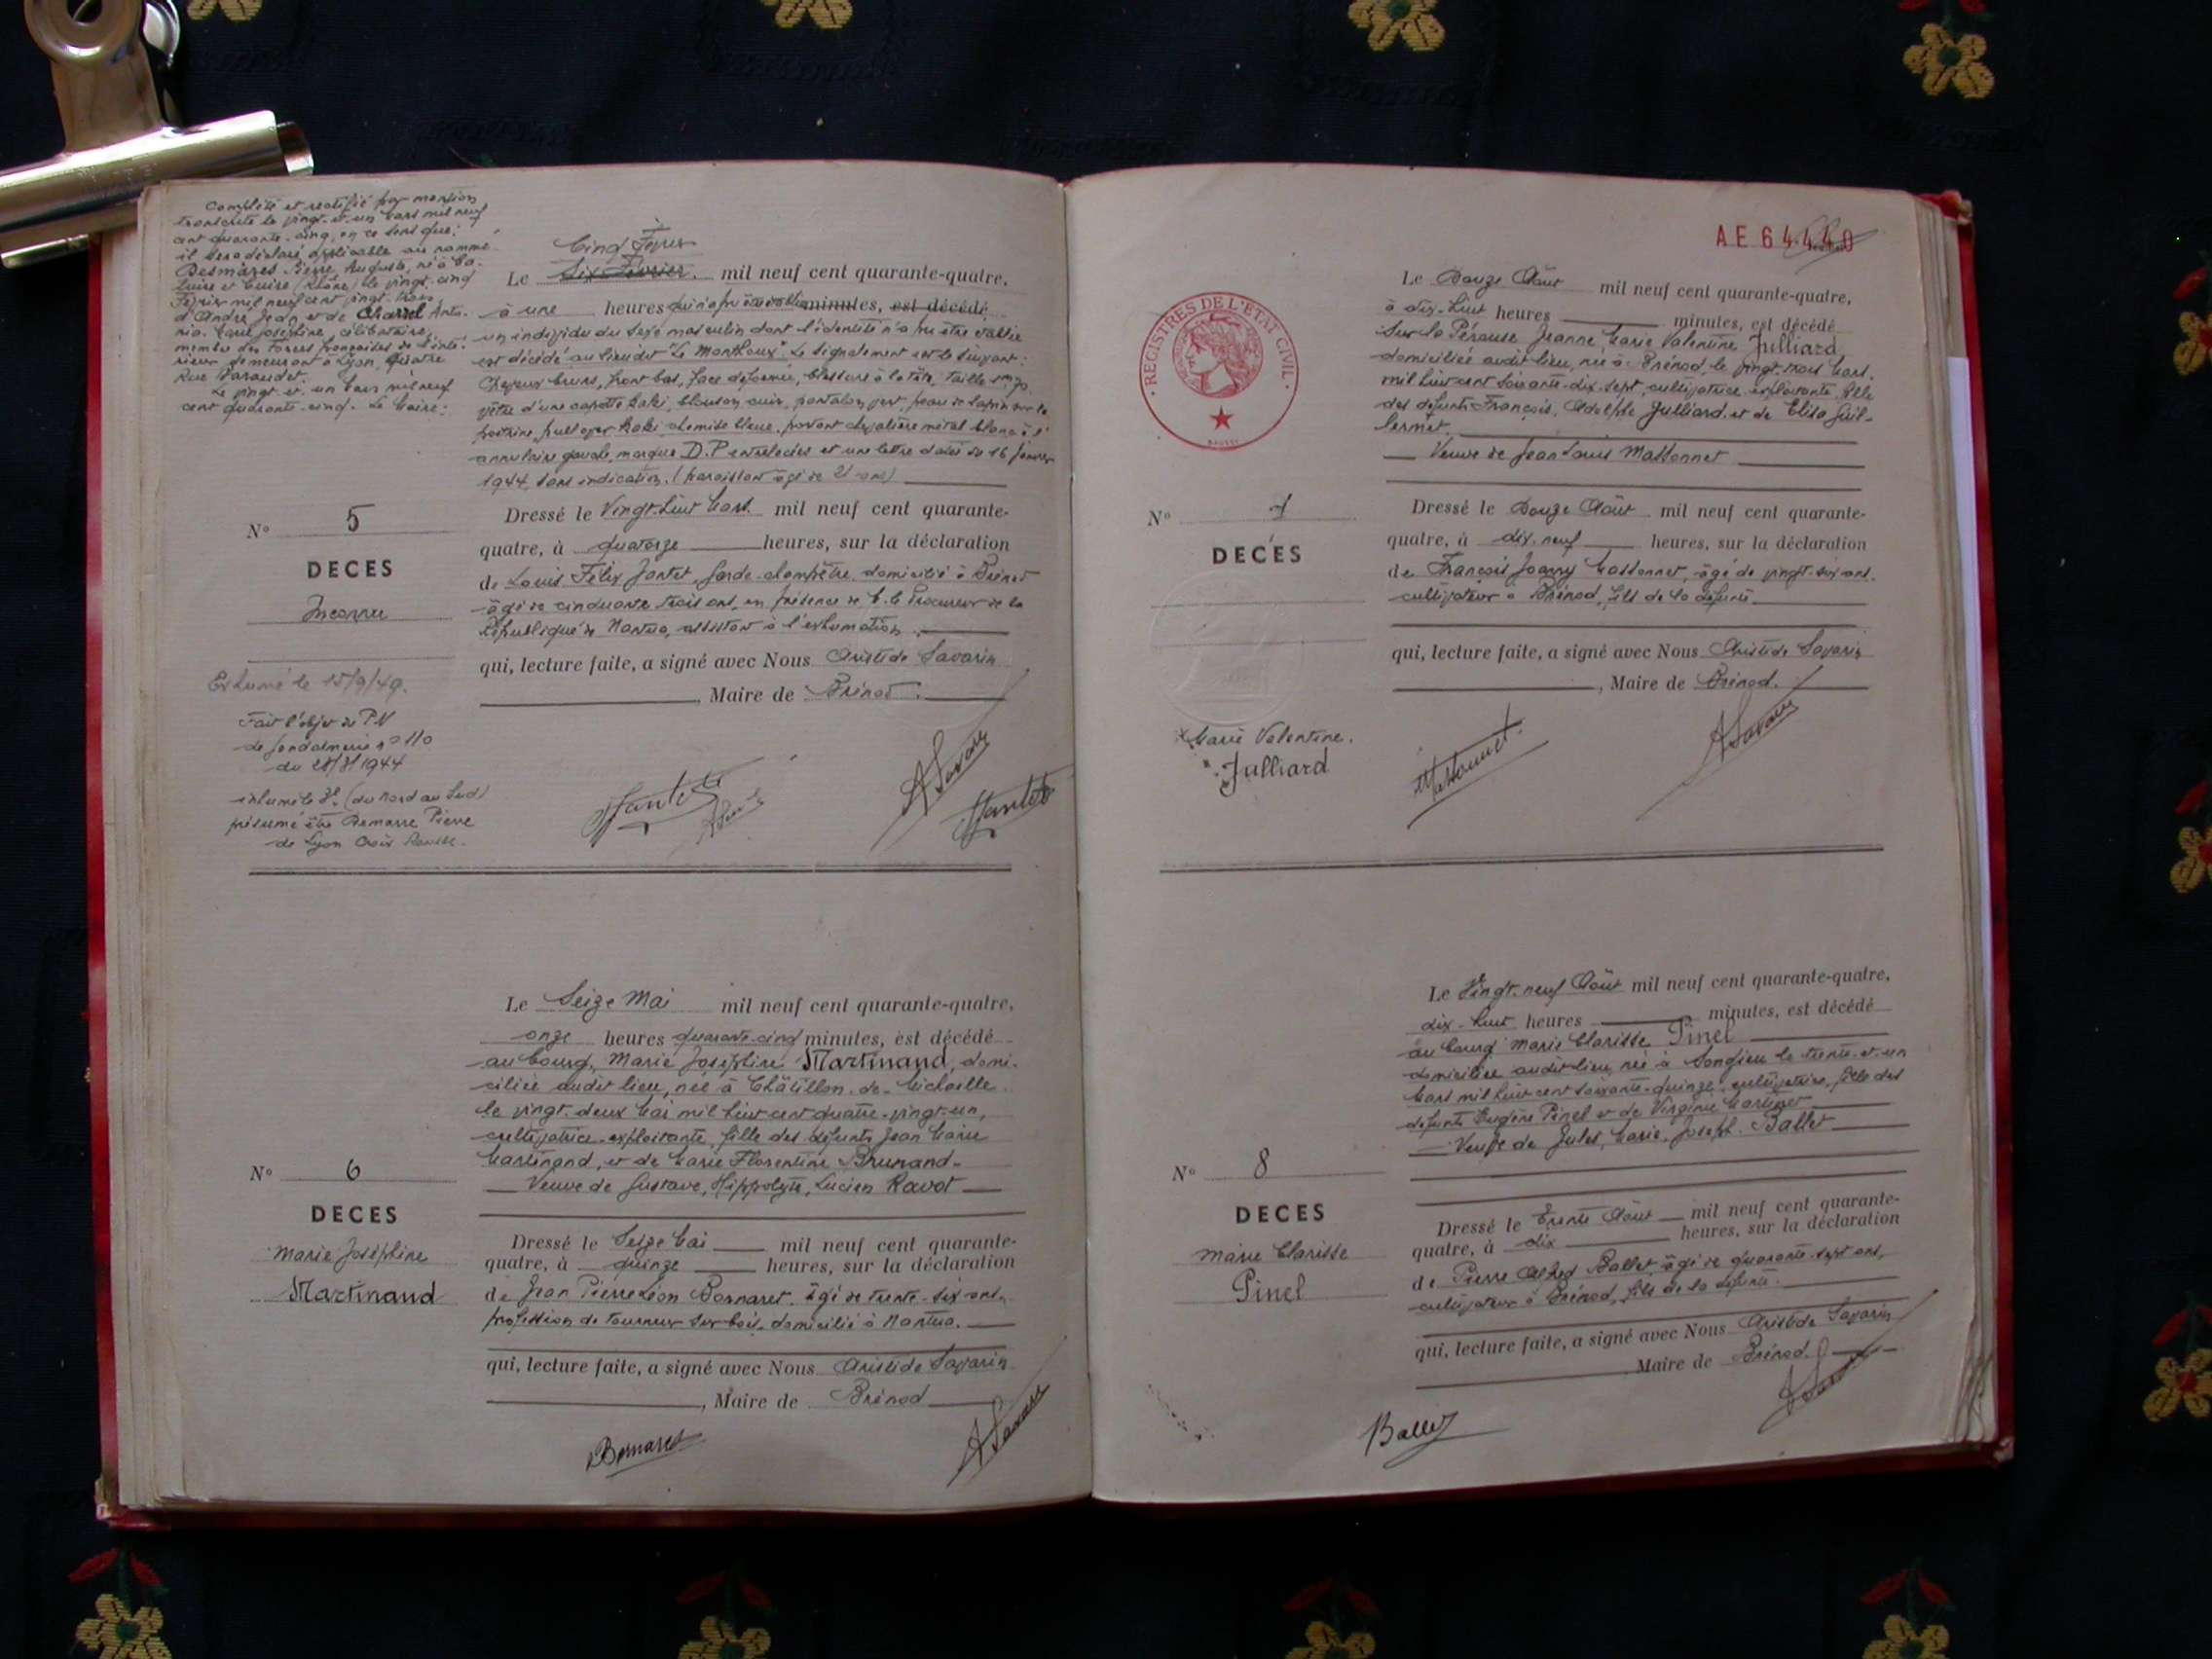 Complété et rectifié par mention
transcrite le vingt-et-un Mars mil neuf
cent quarante-cinq, en ce sens que:
il sera déclaré applicable au nommé
Desmares Pierre, Auguste, né à Ca-
luire et Cuire (Rhône) le vingt-cinq
Février mil neuf cent vingt-trois,
d'André Jean et de Charrel Anto-
nia Marie Joséphine, célibataire,
membre des Forces françaises de l'inté-
rieur demeurant à Lyon, quatre
Rue
Le vingt et un Mars mil neuf
cent quarante-cinq. Le Maire:
Cinq Février
Le Six Février. mil neuf cent quarante-quatre,
à une heures minutes, est décédé
un individu du sexe masculin dont l'identité n'a pu être établie
est décédé au lieudit "Le Monthoux". Le signalement est le suivant:
Cheveux bruns, front bas, face déformée, blessure à la tête, taille 1m70
vêtu d'une capote kaki, blouson cuir, pantalon vert, peau de lapin sur la
poitrine, pullover kaki, chemise bleue, portant chevalière métal blanc à l'
annulaire gauche, marque D.P entrelacées et une lettre datée du 16 Janvier
1944, sans indication. (paraissant âgé de 21 ans)
N° 5
DECES
Inconnu
Dressé le Vingt-huit Mars mil neuf cent quarante-
quatre, à quatorze heures, sur la déclaration
de Louis Félix Jantet, garde-champêtre domicilié à Brénod
âgé de cinquante trois ans, en présence de M. le Procureur de la
République de Nantua, assistant à l'exhumation.
qui, lecture faite, a signé avec Nous Aristide Savarin
, Maire de Brénod.
Exhumé le 15/9/49.
Fait l'objet du PV
de gendarmerie n° 110
du 28/3/1944
inhumé le 3e (du Nord au Sud)
présumé être Demarre Pierre
de Lyon Croix Rousse.
Jantet
A Savarin
Jantet
Le Seize Mai mil neuf cent quarante-quatre,
onze heures quarante-cinq minutes, est décédé
au bourg, Marie Joséphine Martinand, domi-
ciliée audit lieu, née à Châtillon-de-Michaille
le vingt-deux Mai mil huit cent quatre-vingt-un,
cultivatrice-exploitante, fille des défunts Jean Marie
Martinand, et de Marie Florentine Brunand-
Veuve de Gustave, Hippolyte, Lucien Ravot
N° 6
DECES
Marie Joséphine
Martinand
Dressé le Seize Mai mil neuf cent quarante-
quatre, à quinze heures, sur la déclaration
de Jean Pierre Léon Bornaret, âgé de trente-six ans,
profession de tourneur sur bois, domicilié à Nantua.
qui, lecture faite, a signé avec Nous Aristide Savarin
, Maire de Brénod
Bornaret
A Savarin
AE 64440
REGISTRES DE L'ETAT CIVIL
Le Douze Août mil neuf cent quarante-quatre,
à dix-huit heures minutes, est décédé
Sur la Pérouse Jeanne Marie Valentine Julliard
domiciliée audit lieu, née à Brénod, le vingt-trois Mars
mil huit cent soixante-dix-sept, cultivatrice exploitante fille
des défunts François, Adolphe Julliard et de Elisa Guil-
lermet.
Veuve de Jean Louis Massonnet
N° 7
DECES
Marie Valentine.
Julliard
Dressé le Douze Août mil neuf cent quarante-
quatre, à dix-neuf heures, sur la déclaration
de François Joanny Massonnet, âgé de vingt-six ans.
cultivateur à Brénod, fils de la défunte
qui, lecture faite, a signé avec Nous Aristide Savarin
, Maire de Brénod.
Massonnet
A Savarin
Le Vingt-neuf Août mil neuf cent quarante-quatre,
dix-huit heures minutes, est décédé
au bourg Marie Clarisse Pinel
domiciliée audit lieu, née à Songieu le trente-et-un
Mars mil huit cent soixante-quinze, cultivatrice, fille des
défunts Eugène Pinel et de Virginie Martinet
Veuve de Jules, Marie, Joseph. Ballet
N° 8
DECES
Marie Clarisse
Pinel
Dressé le Trente Août mil neuf cent quarante-
quatre, à dix heures, sur la déclaration
de Pierre Alfred Ballet, âgé de quarante-sept ans,
cultivateur à Brénod, fils de la défunte.
qui, lecture faite, a signé avec Nous Aristide Savarin
Maire de Brénod.
Ballet
A Savarin